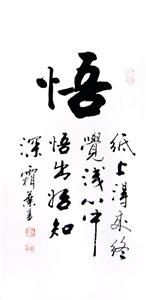 悟
纸上得来终
觉浅心中
悟出始知
深 霜叶书